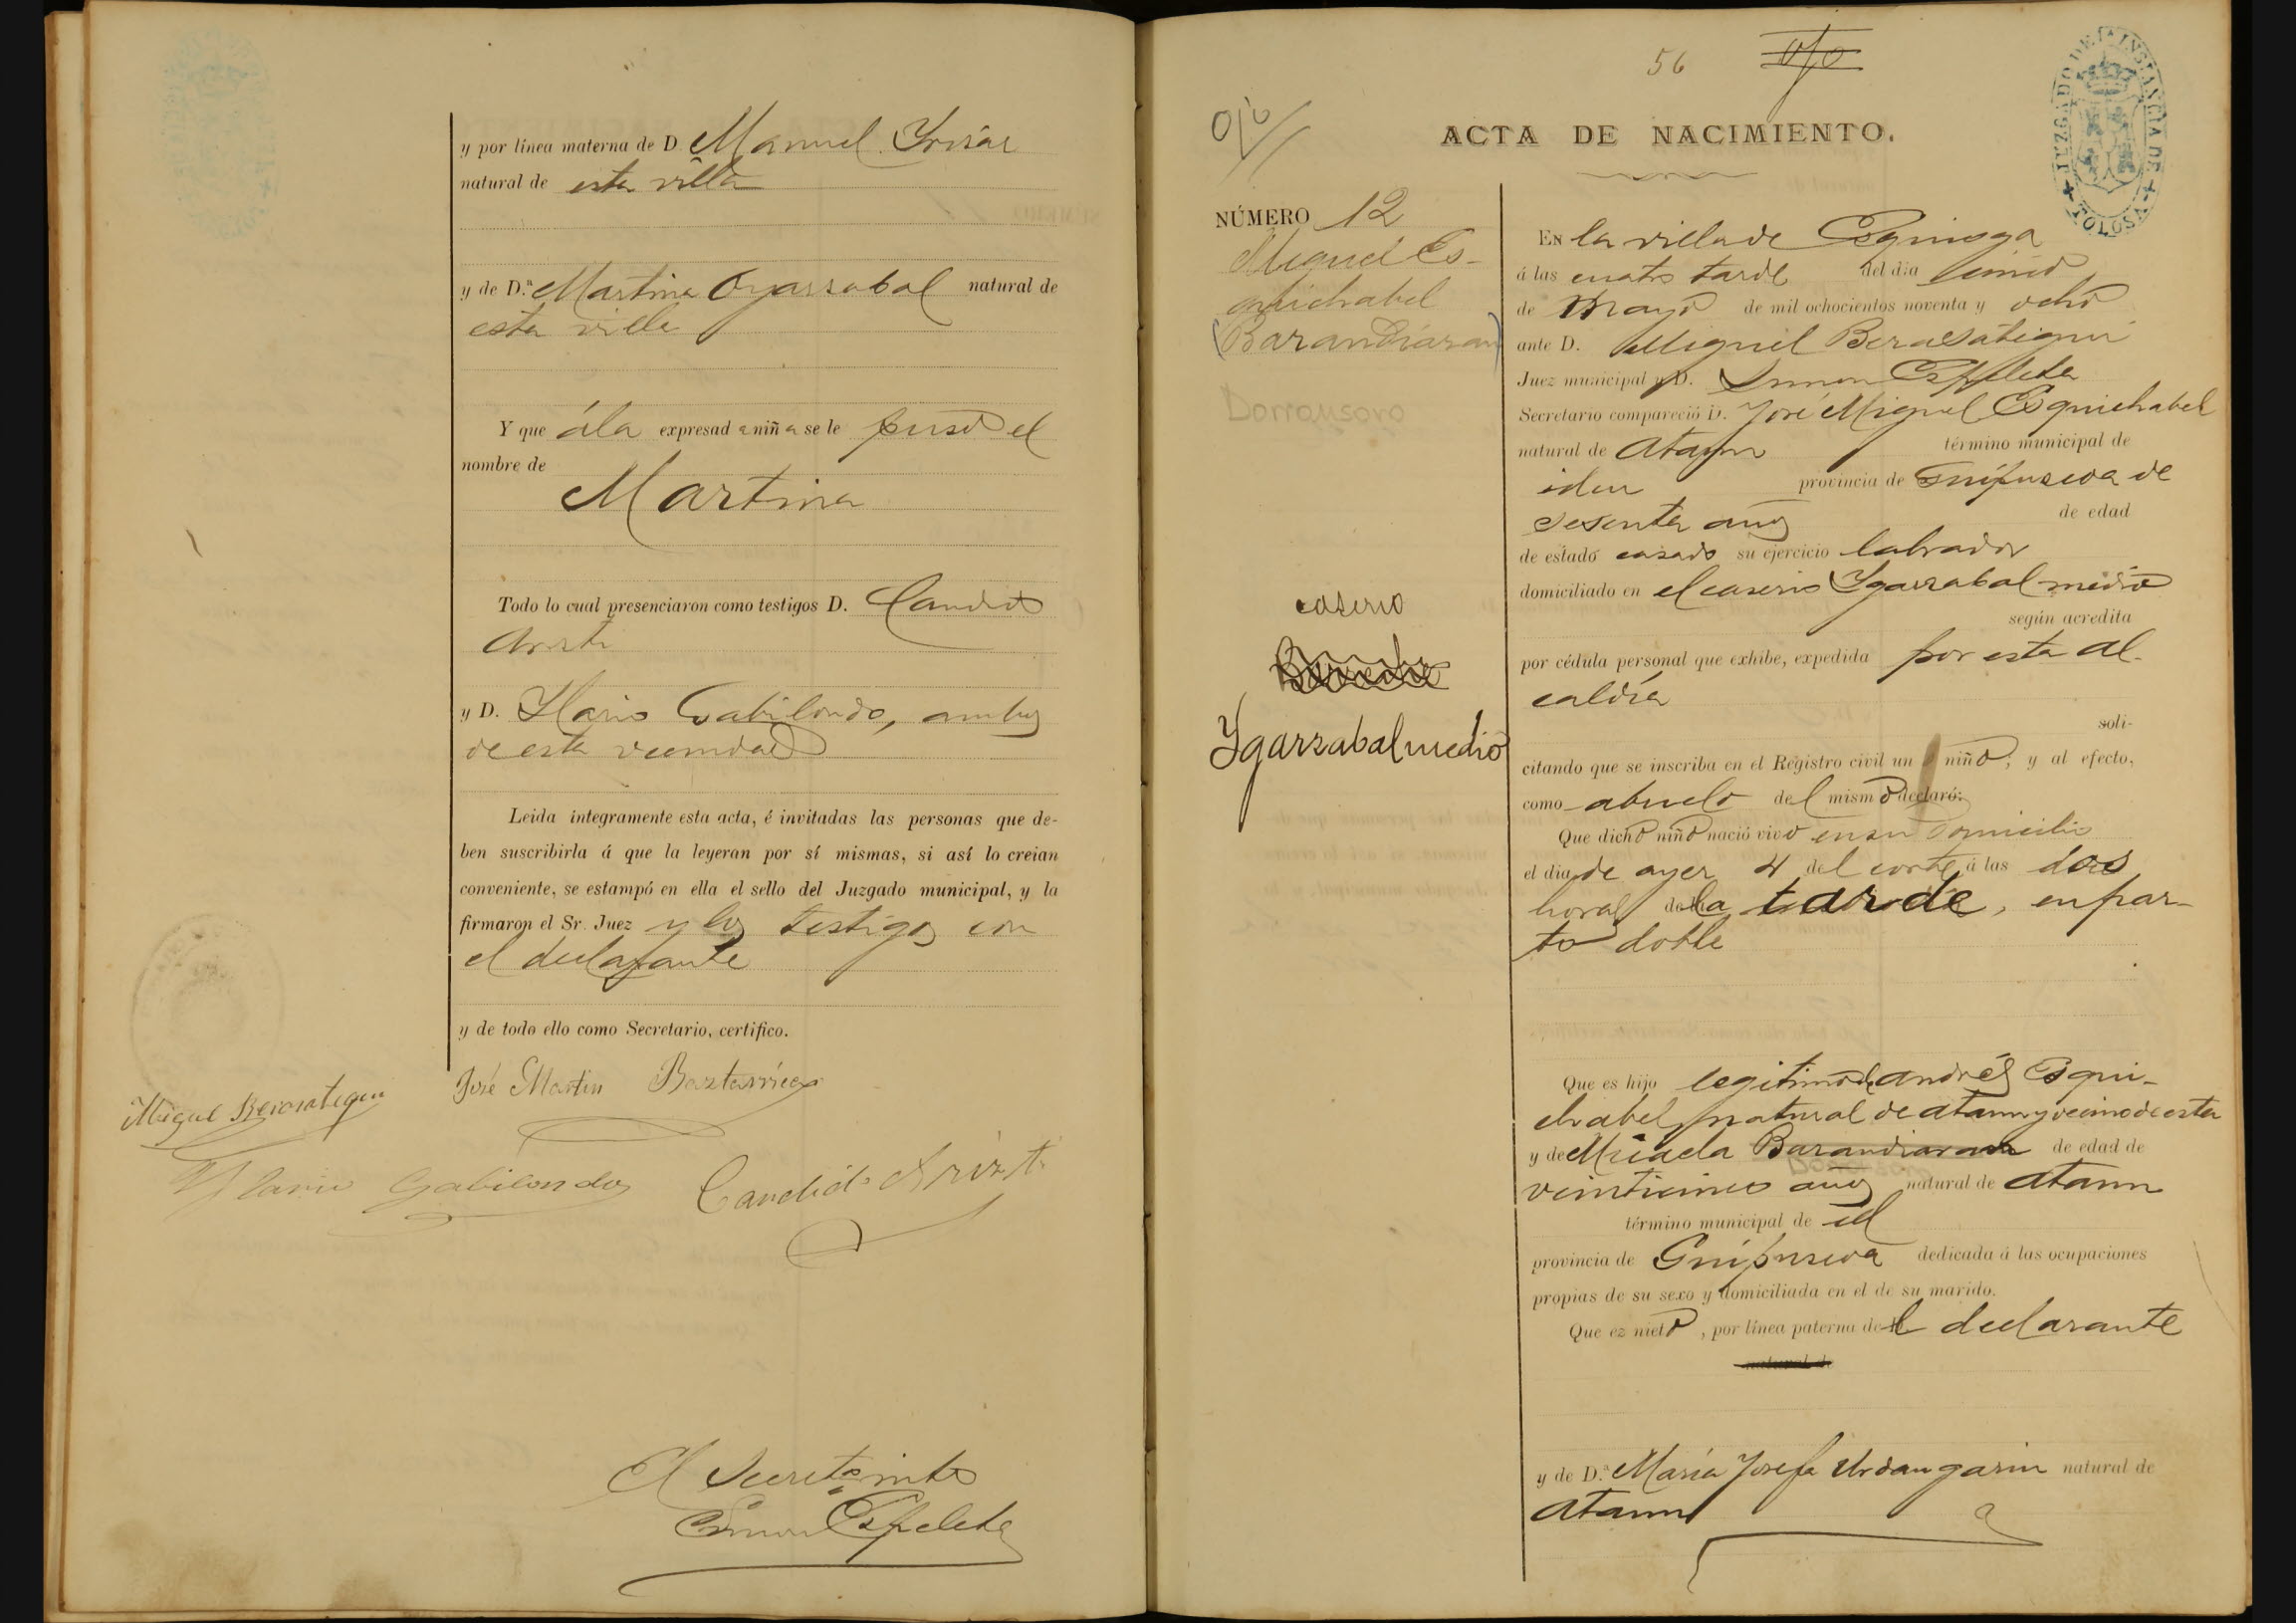 y por línea materna de D. Manuel Yrizar
natural de esta villa
y de D.ª Martina Oyarzabal natural de
esta villa
Y que á la expresad a niñ a se le puso el
nombre de
Martina
Todo lo cual presenciaron como testigos D. Candido
Arizti
y D. Ylario Gabilondo, ambos
de esta vecindad
Leida integramente esta acta, é invitadas las personas que de-
ben suscribirla á que la leyeran por sí mismas, si así lo creian
conveniente, se estampó en ella el sello del Juzgado municipal, y la
firmaron el Sr. Juez y los testigos con
el declarante
y de todo ello como Secretario, certifico.
José Martin Baztarrica
Miguel Berasategui
Ylario Gabilondo Candido Arizti
El Secret.º int.º
Simon Ezpeleta
56 ojo
ojo
ACTA DE NACIMIENTO.
JUZGADO DE 1.ª INSTANCIA DE TOLOSA
NÚMERO 12
Miguel Es-
quichabel
(Barandiaran)
Dorronsoro
caserio
Ygarzabal medio
EN la villa de Ezquioga
á las cuatro tarde del dia cinco
de Mayo de mil ochocientos noventa y ocho
ante D. Miguel Berasategui
Juez municipal y D. Simon Ezpeleta
Secretario compareció D. José Miguel Esquichabel
natural de Ataun término municipal de
idem provincia de Guipuzcoa de
sesenta años de edad
de estado casado su ejercicio labrador
domiciliado en el caserio Ygarzabal medio
según acredita
por cédula personal que exhibe, expedida por esta Al-
caldía
soli-
citando que se inscriba en el Registro civil un niño; y al efecto,
como abuelo del mismo declaró:
Que dicho niño nació vivo en su domicilio
el dia de ayer 4 del corte á las dos
horas de la tarde, en par-
to doble
Que es hijo legitimo de Andrés Esqui-
chabel, natural de Ataun y vecino de esta
y de Micaela Barandiaran de edad de
Dorronsoro
veinticinco años natural de Ataun
término municipal de id
provincia de Guipuzcoa dedicada á las ocupaciones
propias de su sexo y domiciliada en el de su marido.
Que es nieto, por línea paterna del declarante
natural de
y de D.ª María Josefa Urdangarin natural de
Ataun